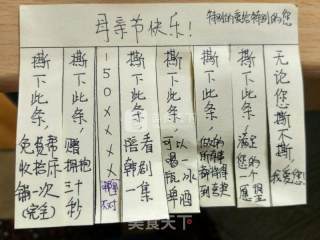 母亲节快乐!
特别的爱给特别的您
撕下此条,
免费帮
收拾床
铺一次
(完全)
撕下此条,
赠拥抱
三十
秒
150XXXX
撕下此条,
陪看
韩剧
一集
撕下此条,
可以
喝一
瓶冰
啤酒
撕下此条,
撕下此条,
满足
您的
一个
愿望
无论您撕不撕,
我爱您!